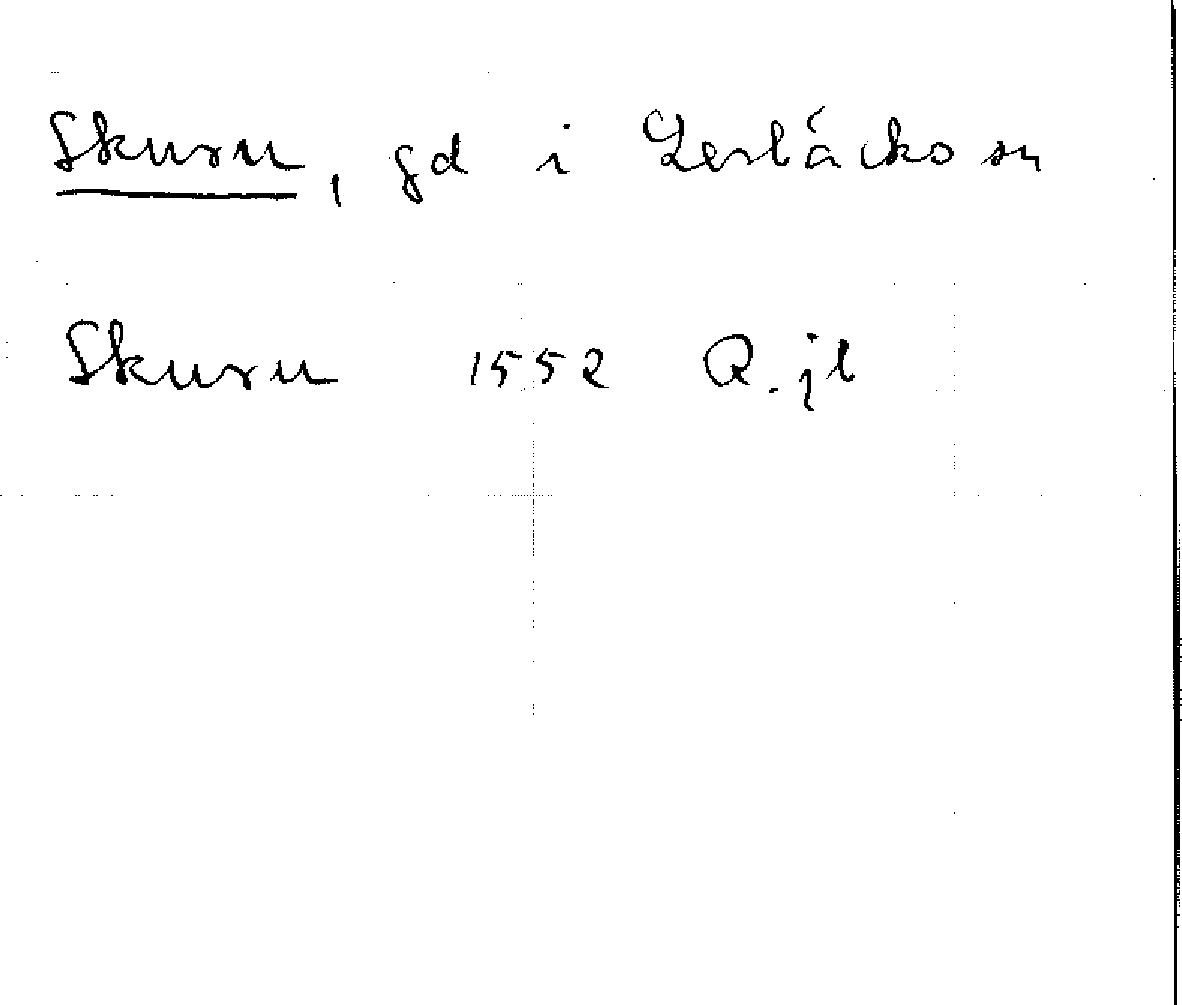 Skuru, gd i Lerbäcks sn
Skuru 1552 R. jb